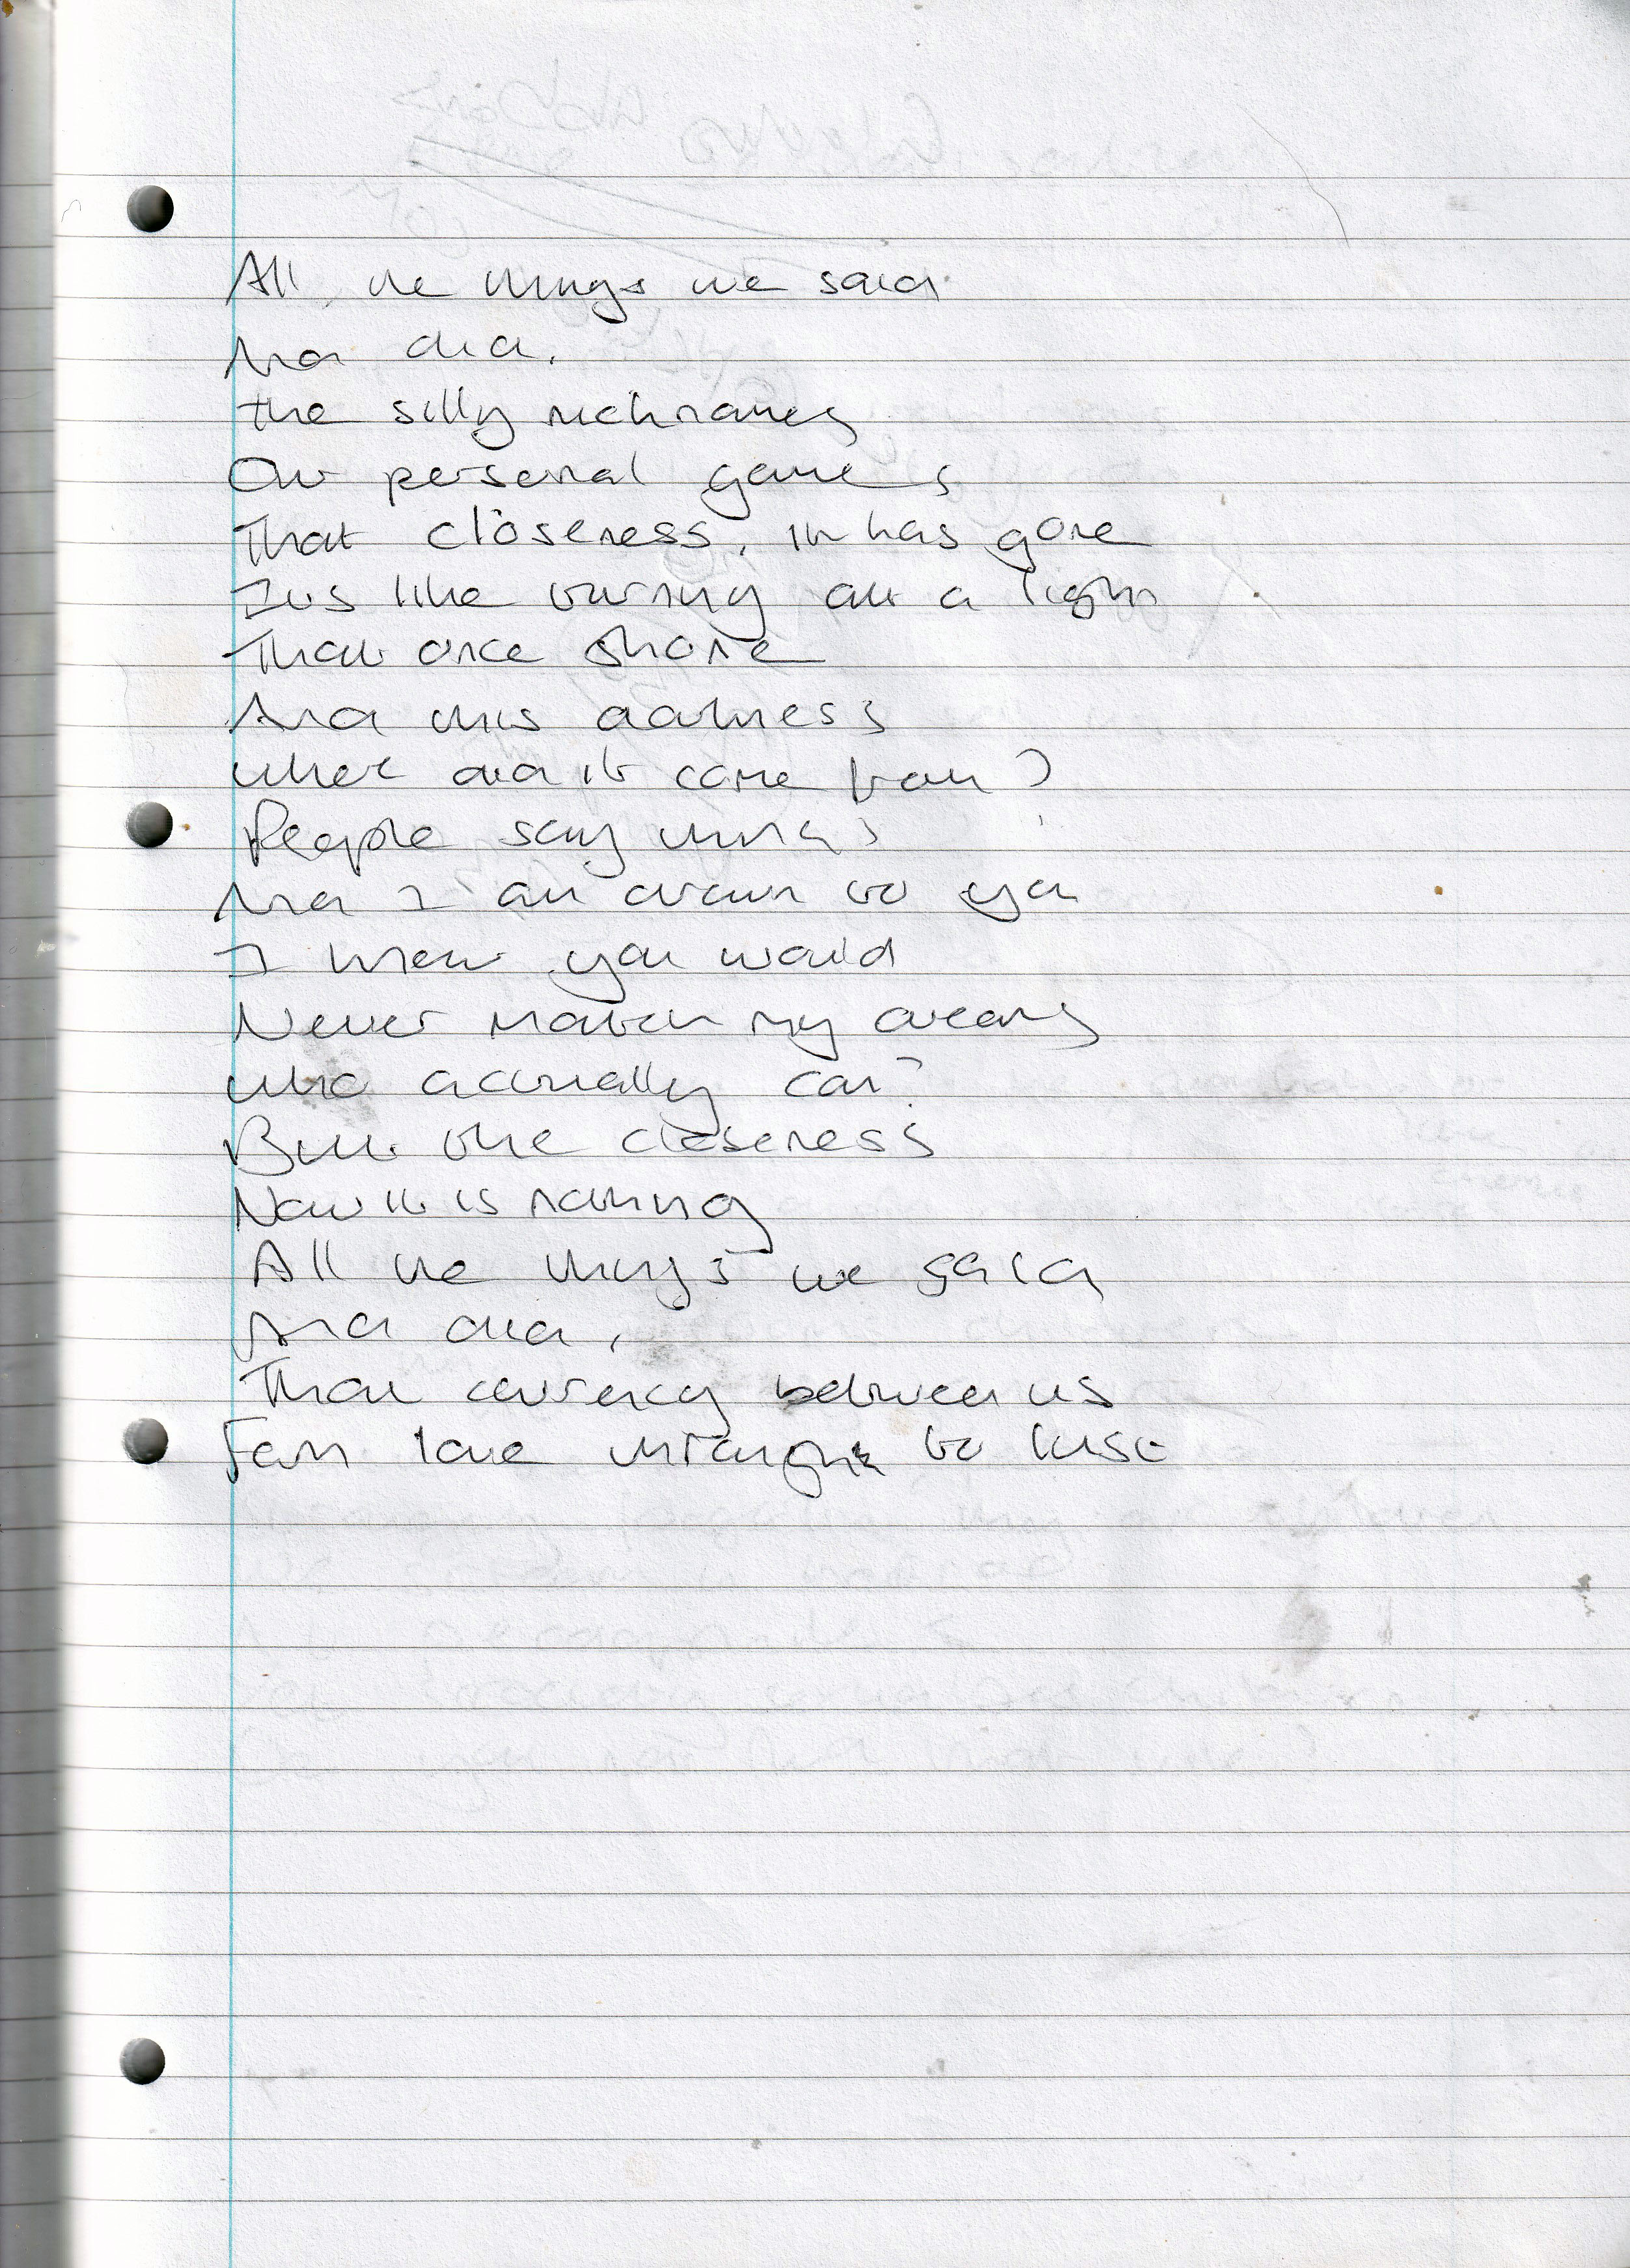 All the things we said
And did.
The silly nicknames
Our personal games
That closeness, it has gone
Its like turning out a light
That once shone
And this darkness
Where did it come from?
People say things
And I am drawn to you
I knew you would
Never match my dreams
Who actually can?
But the closeness
Now it is nothing
All the things we said
And did,
That currency between us
From love to lust